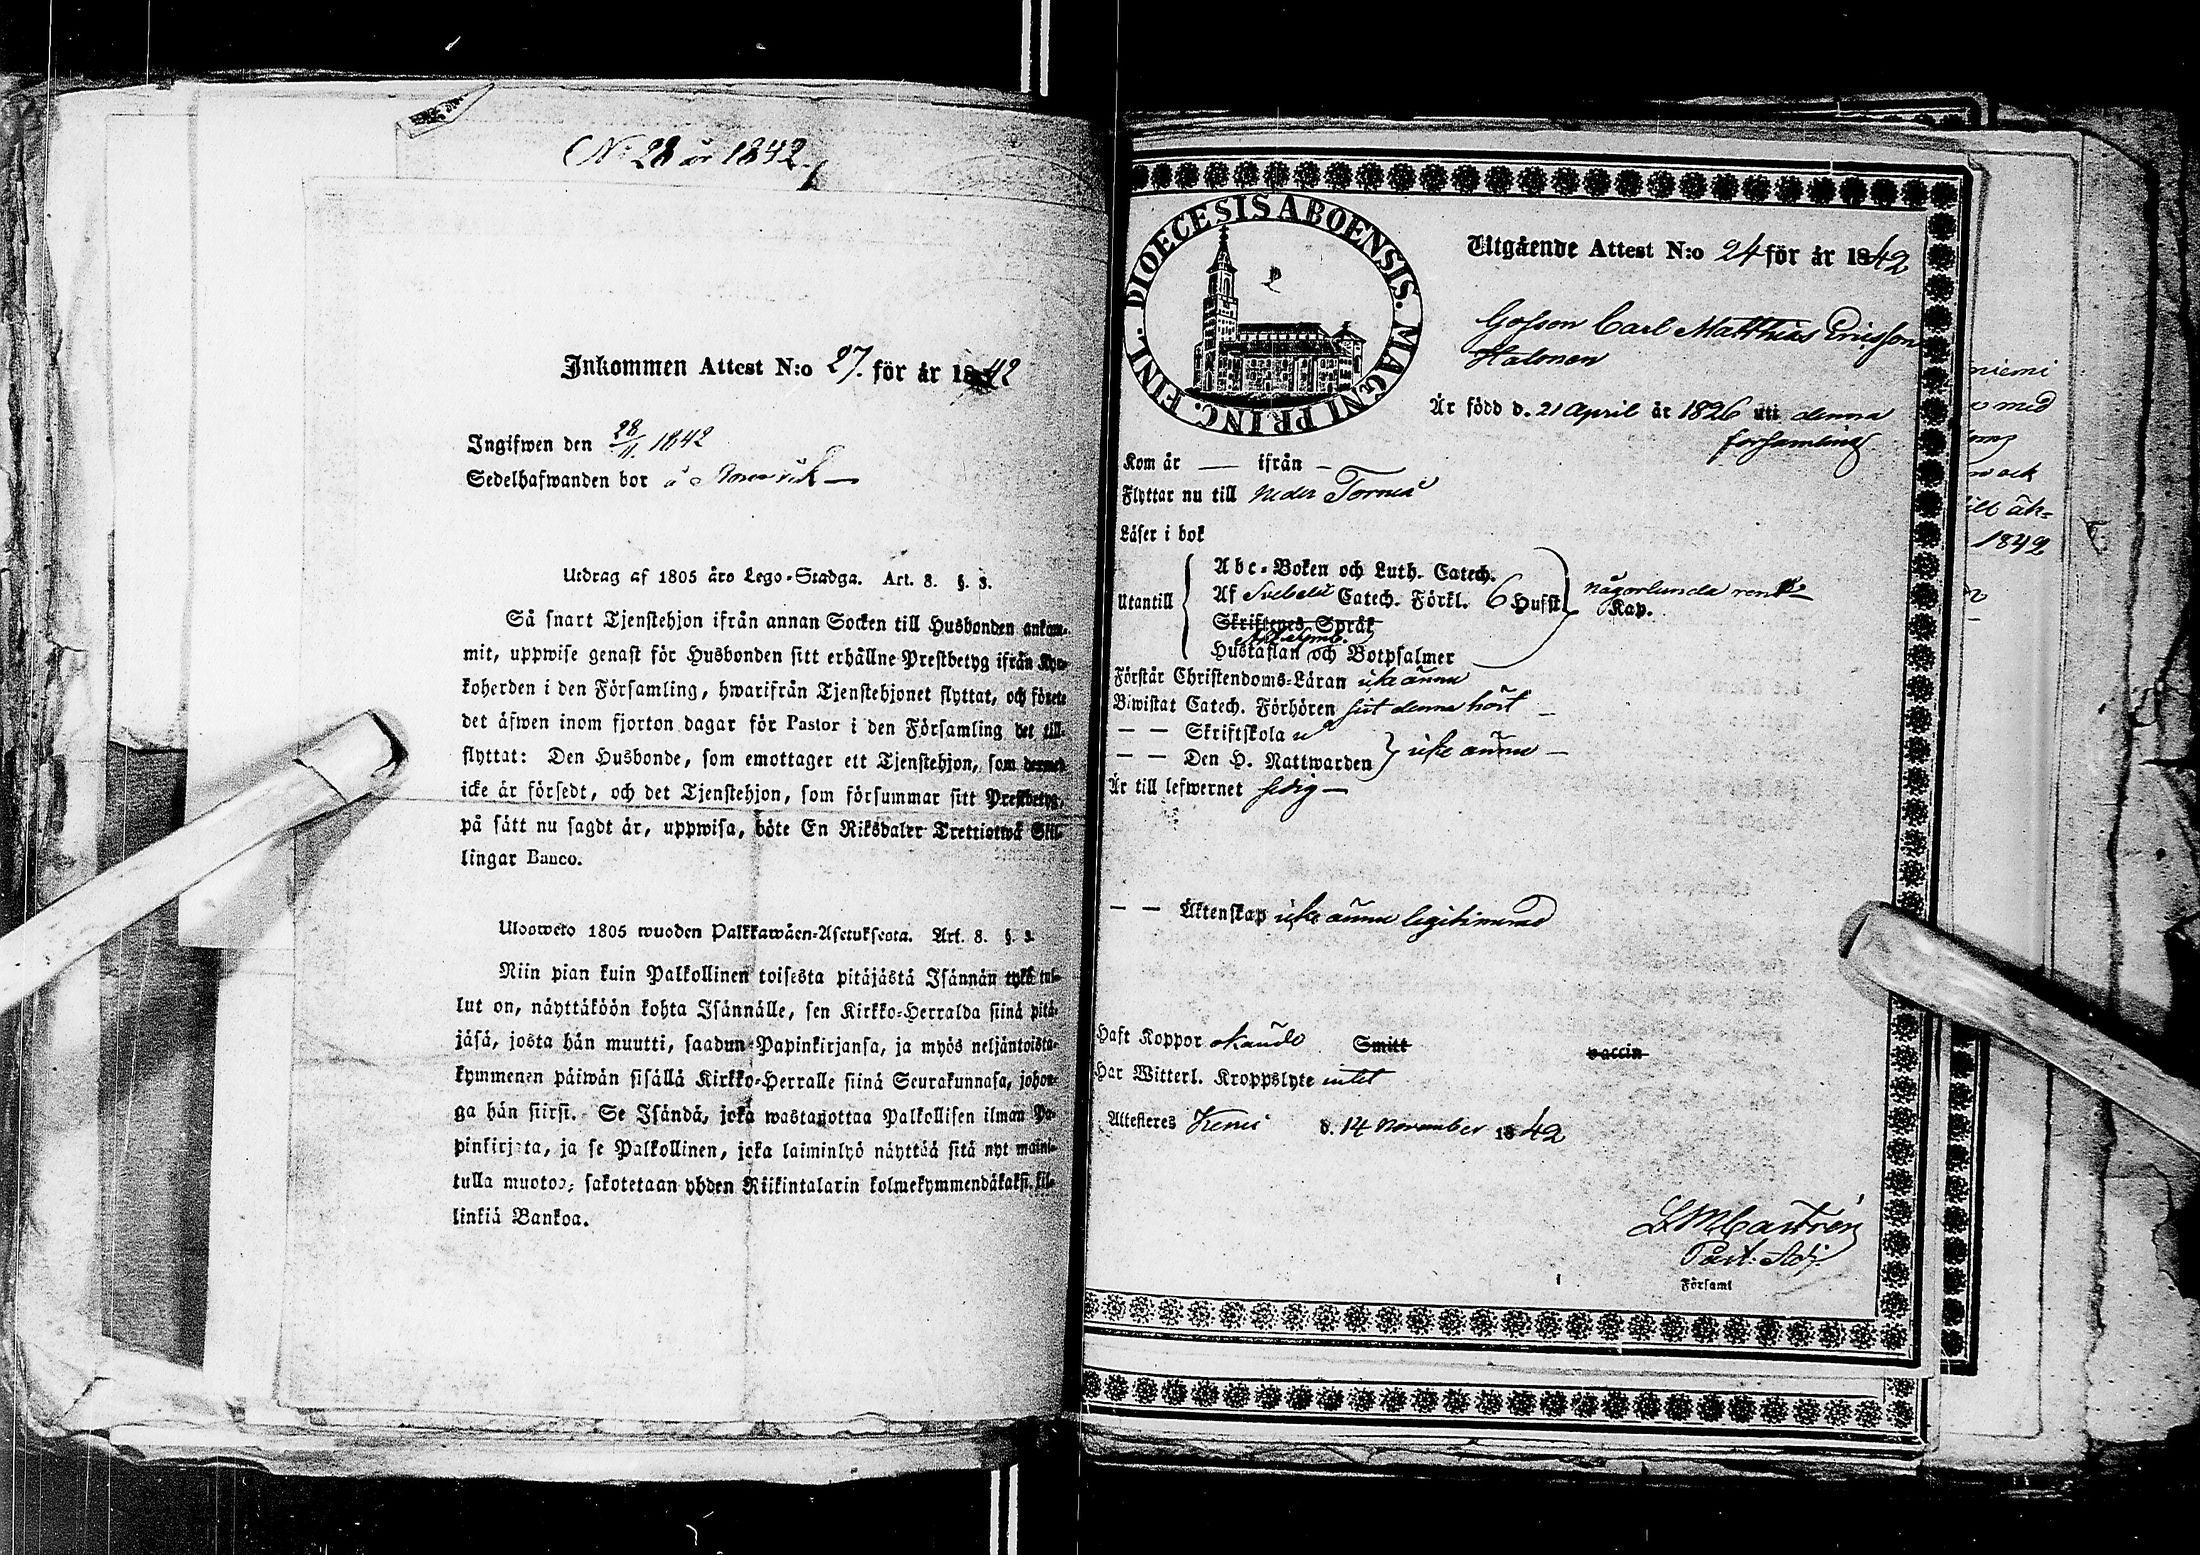 N:o 28 år 1842.
Inkommen Attest N:o 27. för år 1842
Ingifwen den 28/11. 1842
Sedelhafwanden bor å
Utdrag af 1805 års Lego-Stadga. Art. 8. §. 3.
Så snart Tjenstehjon ifrån annan Socken till Husbonden ankom-
mit, uppwise genast för Husbonden sitt erhållne Prestbetyg ifrån Kyr-
koherden i den Församling, hwarifrån Tjenstehjonet flyttat, och förete
det äfwen inom fjorton dagar för Pastor i den Församling det till-
flyttat: Den Husbonde, som emottager ett Tjenstehjon, som dermed
icke är försedt, och det Tjenstehjon, som försummar sitt Prestbetyg,
på sätt nu sagdt är, uppwisa, böte En Riksdaler Trettiotwå Skil-
lingar Banco.
Ulosweto 1805 wuoden Palkkawäen-Asetuksesta. Art. 8. §. 3.
Niin pian kuin Palkollinen toisesta pitäjästä Isännän tykö tul-
lut on, näyttäköön kohta Isännälle, sen Kirkko-Herralda siinä pitä-
jäsä, josta hän muutti, saadun Papinkirjansa, ja myös neljäntoista-
kymmenen päiwän sisällä Kirkko-Herralle siinä Seurakunnasa, johon-
ga hän siirsi. Se Isändä, joka wastanottaa Palkollisen ilman Pa-
pinkirjata, ja se Palkollinen, joka laiminlyö näyttää sitä nyt maini-
tulla muotoa, sakotetaan yhden Riikintalarin kolmekymmendäkaksi kil-
linkiä Bankoa.
FINL. DIOECESIS ABOENSIS. MAGNI PRINC.
Utgående Attest N:o 24 för år 1842
Gosson Carl Matthias Ericsson
Halonen
Är född d. 21 April år 1826 uti denna
församling
Kom år — ifrån —
Flyttar nu till Neder Torneå
Läser i bok
Utantill
Abc-Boken och Luth. Catech.
Af Svebelii Catech. Förkl. 6 Hufst. någorlunda rent Kap.
Skriftenes Språk
Hustaflan och Botpsalmer
Förstår Christendoms-Läran icke ännu
Biwistat Catech. Förhören sist denna höst —
— — Skriftskola
— — Den H. Nattwarden icke ännu —
Är till lefwernet sedig —
— — Äktenskap icke ännu legitimerad
Haft Koppor okändt Smitt vaccin
Har Witterl. Kroppslyte intet
Attesteres Kemi d. 14 November 1842
L M Castrén
Past. Adj.
Församl
niemi
med
1842